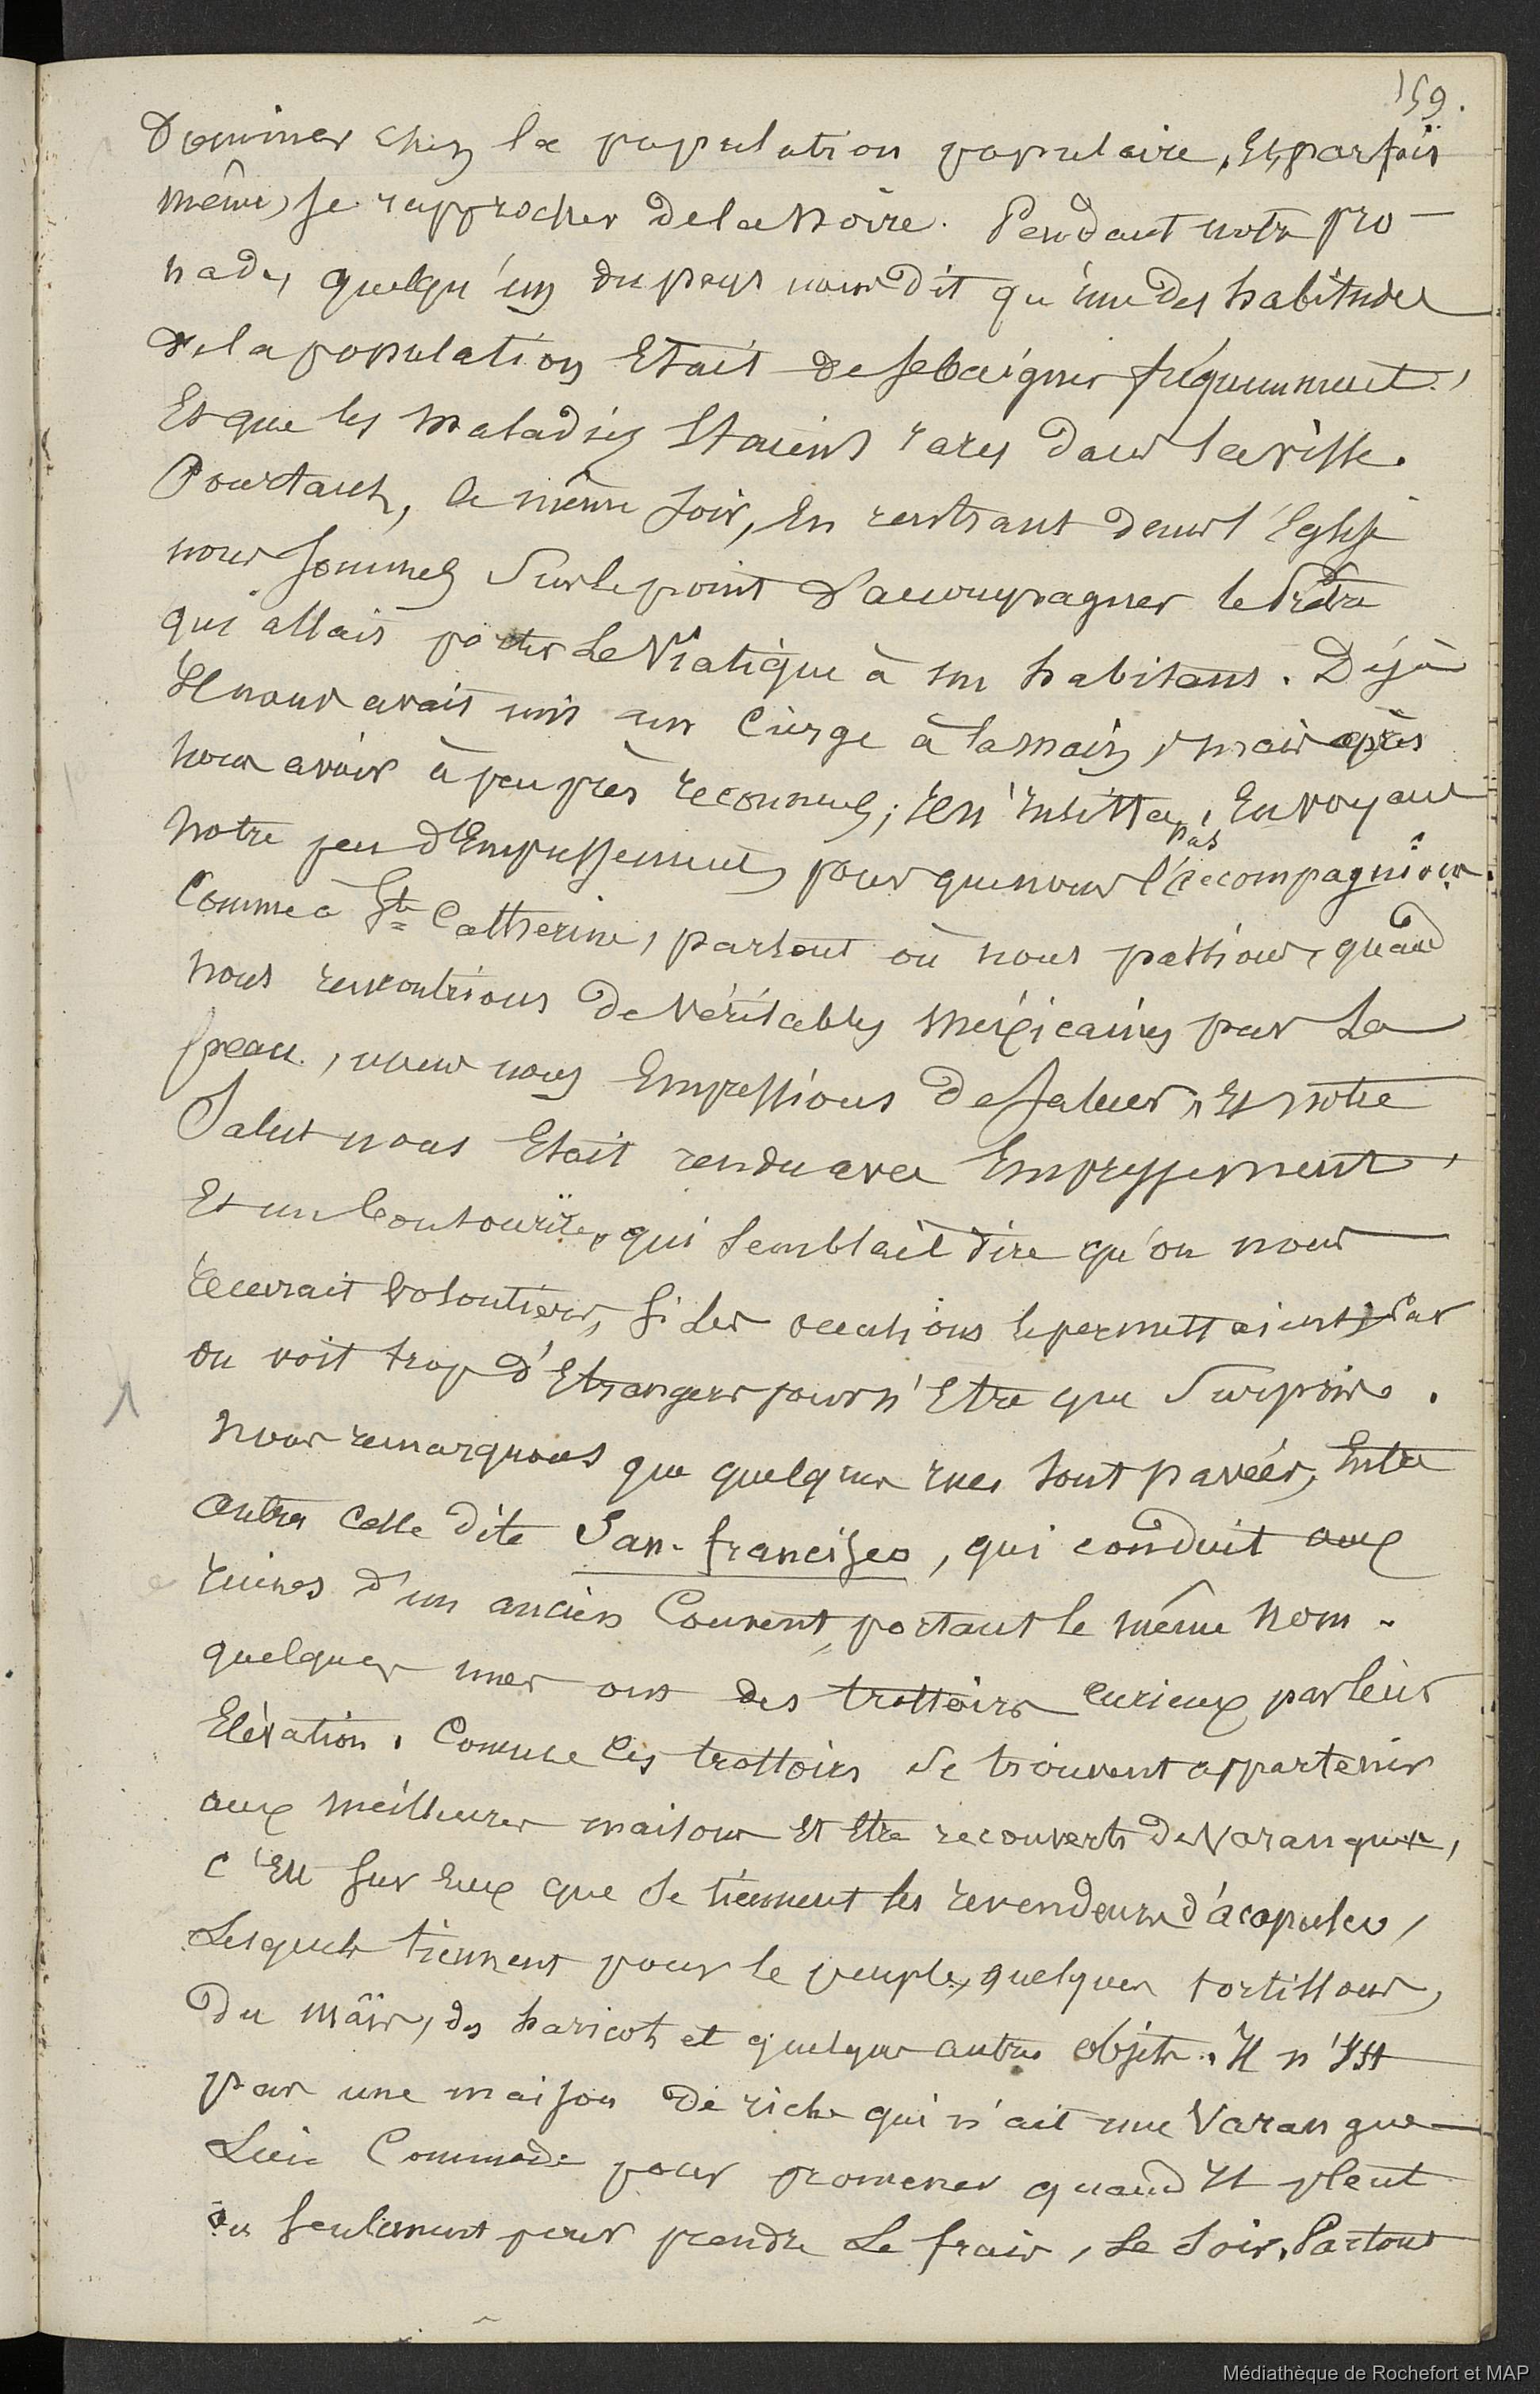 159.
Dominer chez la population populaire, Et, parfois
même, se rapprocher de la Noire. Pendant notre pro-
nade, quelqu'un du pays nous dit qu'une des habitudes
de la population Etait de se baigner fréquemment,
Et que les maladies Etaient rares dans la ville.
Pourtant, le même soir, En rentrant dans l'Eglise
nous sommes sur le point d'accompagner le Prêtre
qui allait porter Le Viatique à un habitant. Déjà
Il nous avait mis un Cierge à la main, mais après
nous avoir à peu près reconnus, Il n'insista pas, En voyant
notre peu d'Empressement, pour que nous l'accompagnions.
Comme à Ste Catherine, partout où nous passions, quand
nous rencontrions de véritables mexicains par La
peau, nous nous Empressions de saluer, Et notre
Salut nous Etait rendu avec Empressement,
Et un bon sourire, qui semblait dire qu'on nous
recevrait volontiers, si Les occasions le permettaient, Car
on voit trop d'Etrangers pour n'Etre que Surpris.
Nous remarquons que quelques rues sont pavées, Entre
autres celle dite San-francisco, qui conduit aux
ruines d'un ancien Couvent, portant le même nom.
quelques unes ont des trottoirs curieux par leur
Elévation. Comme ces trottoirs se trouvent appartenir
aux meilleures maisons Et Etre recouverts de Varangues,
c'Est sur Eux que se tiennent les revendeurs d'acapulco,
Lesquels tiennent pour le peuple, quelques tortillons,
Du maïs, des haricots et quelques autres objets. Il n'Est
pas une maison de riche qui n'ait une Varangue
Lieu Commode pour promener quand Il pleut
ou seulement pour prendre Le frais, Le Soir. Partout
Médiathèque de Rochefort et MAP